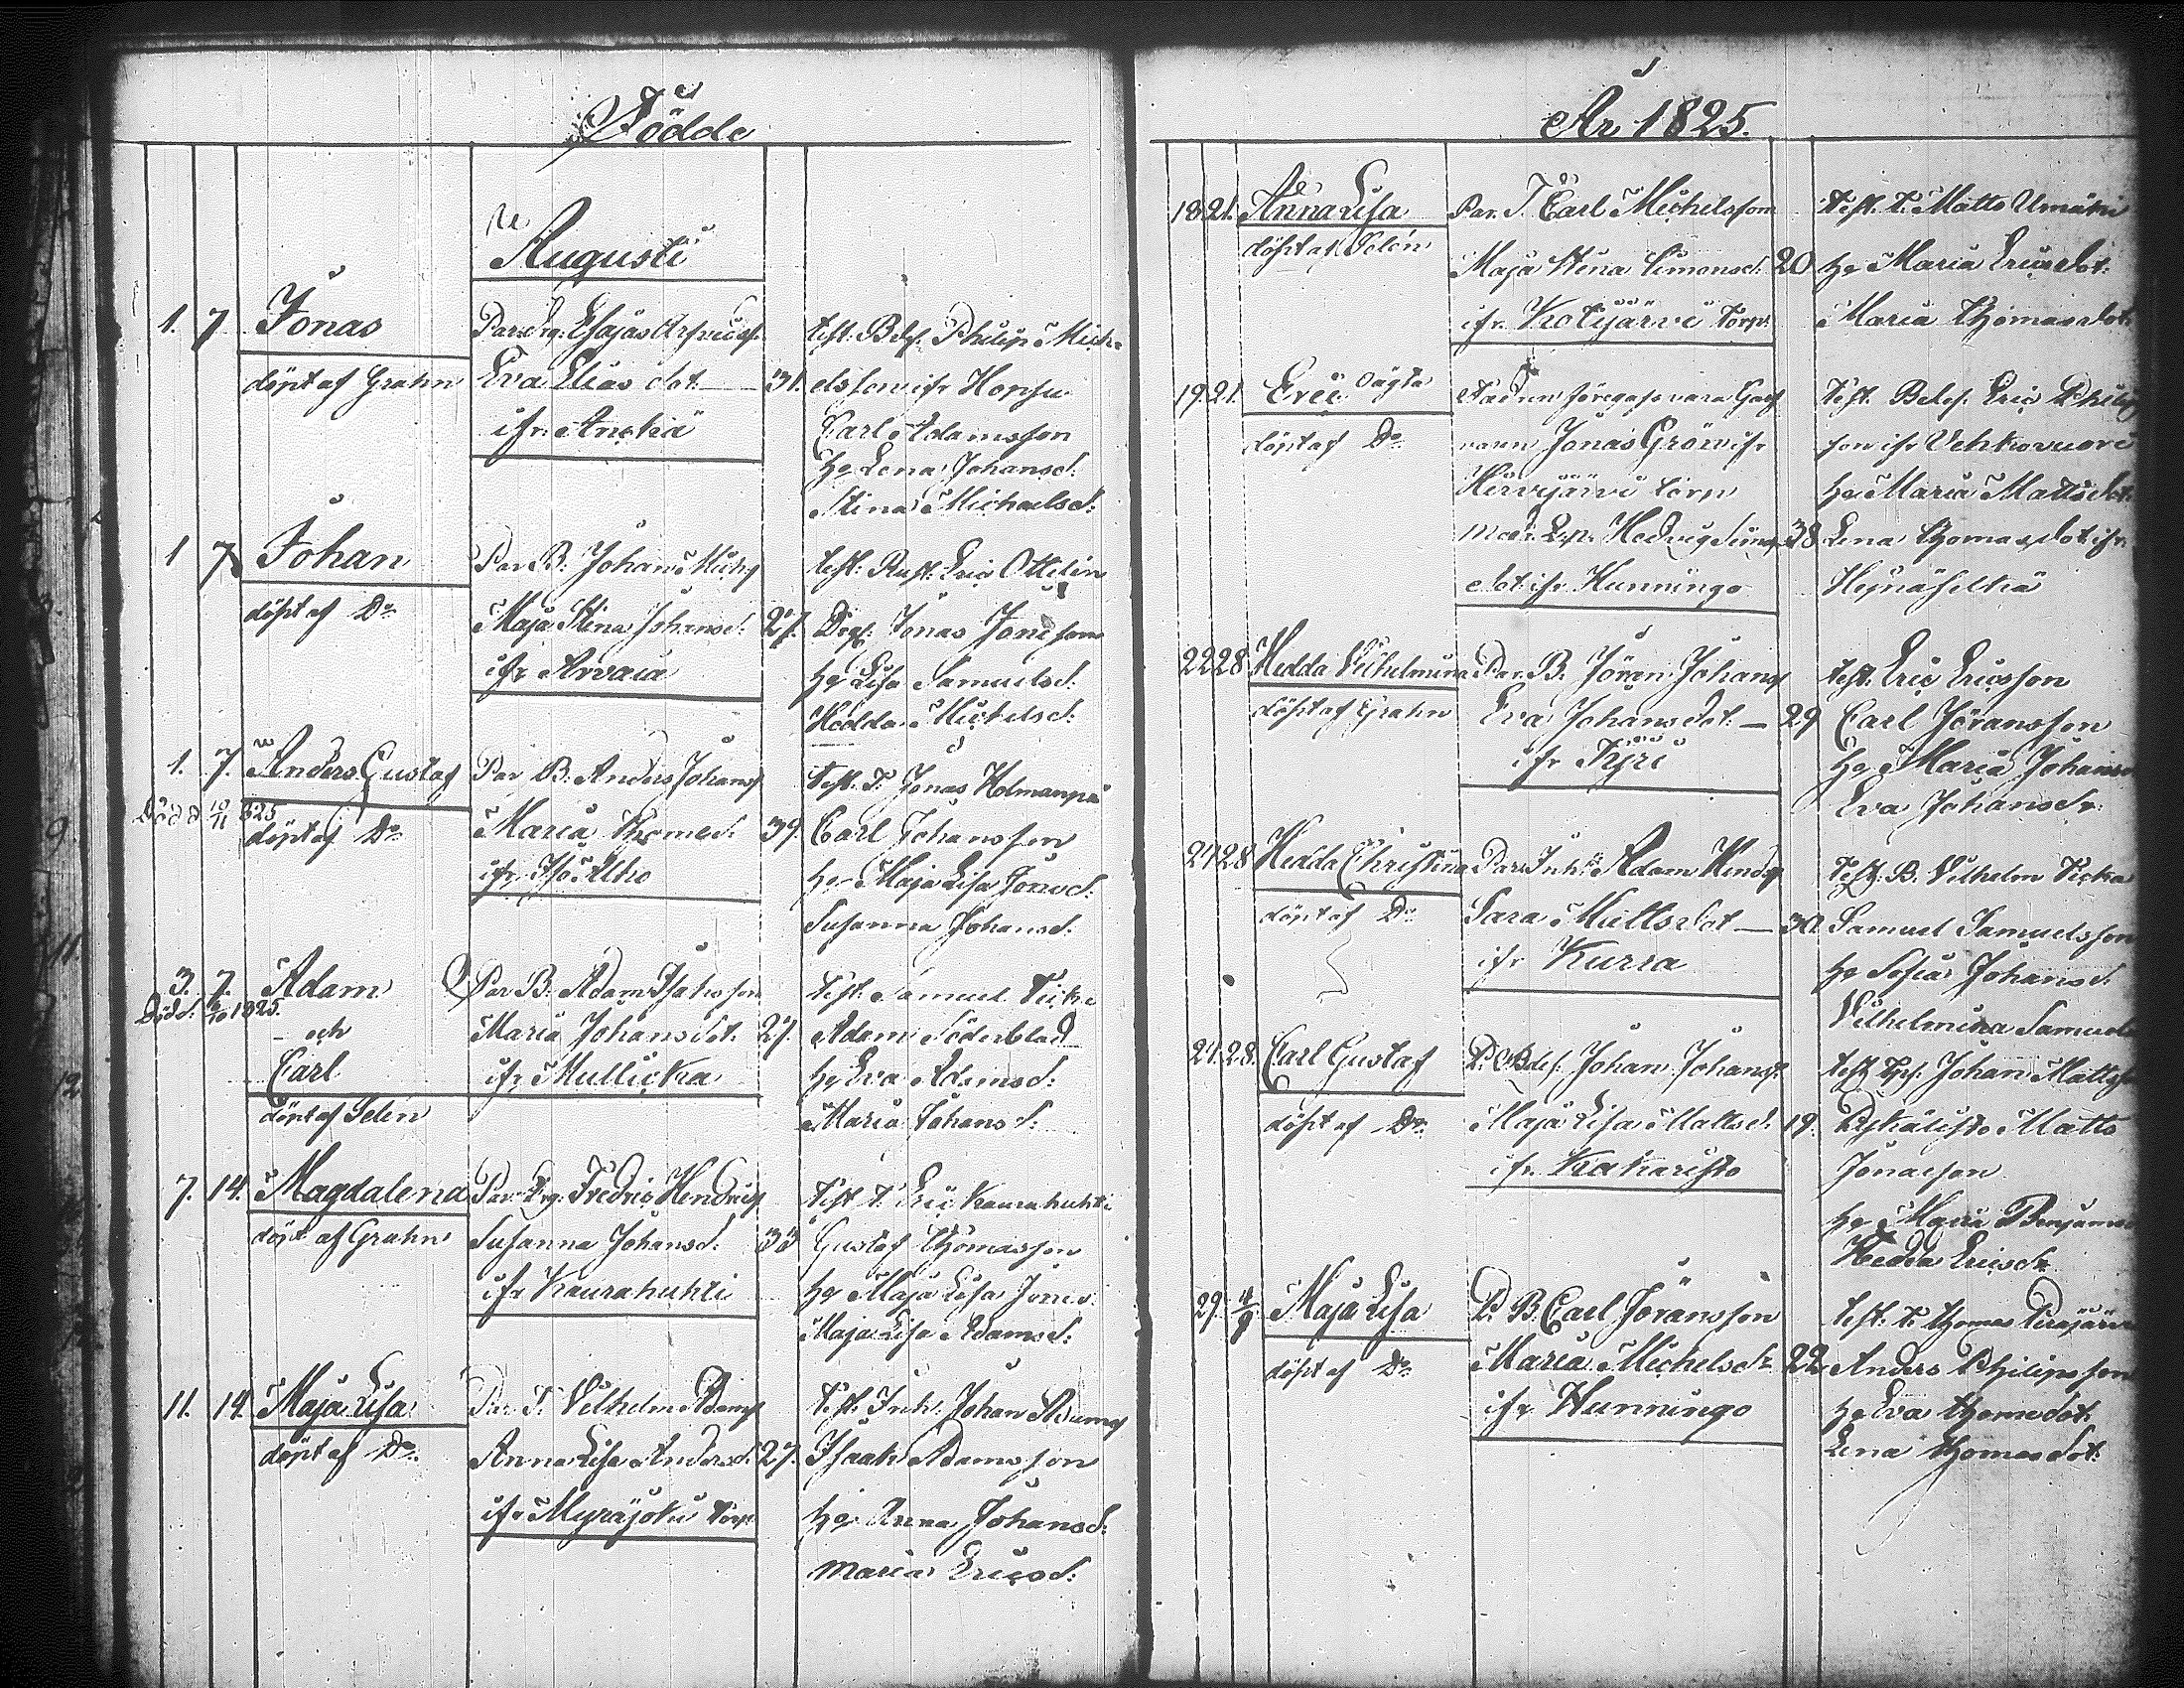 Födde
Augusti
1. 7. Jonas
döpt af Grahn
Par. Drg. Esajas
Eva Elias dot — 31.
ifr.
test. Bds. Philip Mich-
elsson ifr Honsu
Carl Adamsson
hg Lena Johansd:
Stina Michaelsd:
1 7 Johan
döpt af Do
Par B. Johan Michs
Maja Stina Johansd: 27.
ifr Arvaia
test: Rust. Eric Ottelin
Jonas Jonesson
hg Lisa Samuelsd:
Hedda Michelsd:
1. 7. Anders Gustaf
Död d 10/11 825
döpt af Do
Par B. Anders Johanss
Maria Thomed. 39.
ifr Iso Alho
Test. T. Jonas Kolmanpä
Carl Johansson
hg Maja Lisa Jonsd:
Susanna Johansd:
3. 7. Adam
Död. 1825.
och
Carl
döpt af Selen
Par B. Adam Isaksson
Maria Johansdot. 27.
ifr Mullicka
Test. Samuel
Adam Söderblad
hg Eva Adamsd:
Maria Johansd:
7. 14. Magdalena
döpt af Grahn
Par Drg. Fredric Hendrics
Susanna Johansd. 33
ifr Kaurahuhti
Test T. Eric Kaurahuhti
Gustaf Thomasson
hg Maja Lisa Jones:
Maja Lisa Adamsd:
11. 14. Maja Lisa
döpt af Do
Par T. Vilhelm Adams
Anna Lisa Andersd. 27.
ifr Myräjoki torp.
Test. Inh. Johan Adams
Isaak Adamsson
hg Anna Johansd:
Maria Ericsd:
År 1825.
18. 21. Anna Lisa
döpt af Selén
Par. T. Carl Michelsson
Maja Stina Simonsd. 20
ifr. Kotijärvi torp.
test. T. Matts
hg Maria Ericsdot:
Maria Thomasdot.
19. 21. Eric oägta
döpt af Do
Fadren föregifs vara Garf
varn Jonas Grön ifr
Hirvijärvi torp
mod. Hedvig Simons 38.
dot ifr Hunningo
Test. Bdes. Eric Philip
son ifr Vehkavuori
hg Maria Mattsdot.
Lena Thomasdot ifr.
Heinäsilta
22. 28. Hedda Vilhelmina
döpt af Grahn
Par. B. Jöran Johans
Eva Johansdot. — 29
ifr Kyrö
test. Eric Ericsson
Carl Jöransson
hg Maria Johans
Eva Johansdr.
24. 28. Hedda Christina
döpt af Do
Par. Inh. Adam Hends
Sara Mattsdot — 30.
ifr Kurra
Test. B. Vilhelm
Samuel Samuelsson
hg Sofia Johansd.
Vilhelmina Samuels
24. 28. Carl Gustaf
döpt af Do
P. Bdes. Johan Johanss.
Maja Lisa Mattsd. 19.
ifr. Kakaristo
test. Johan Mattss
Matts
Jonasson
hg Maria Benjams
Hedda Ericsdr.
29. 4/9 Maja Lisa
döpt af Do
P. B. Carl Jöransson
Maria Michelsdr. 22
ifr Hunningo
test. T. Thomas Pirajärvi
Anders Philipsson
hg Eva Thomsdot.
Lena Thomasdot.